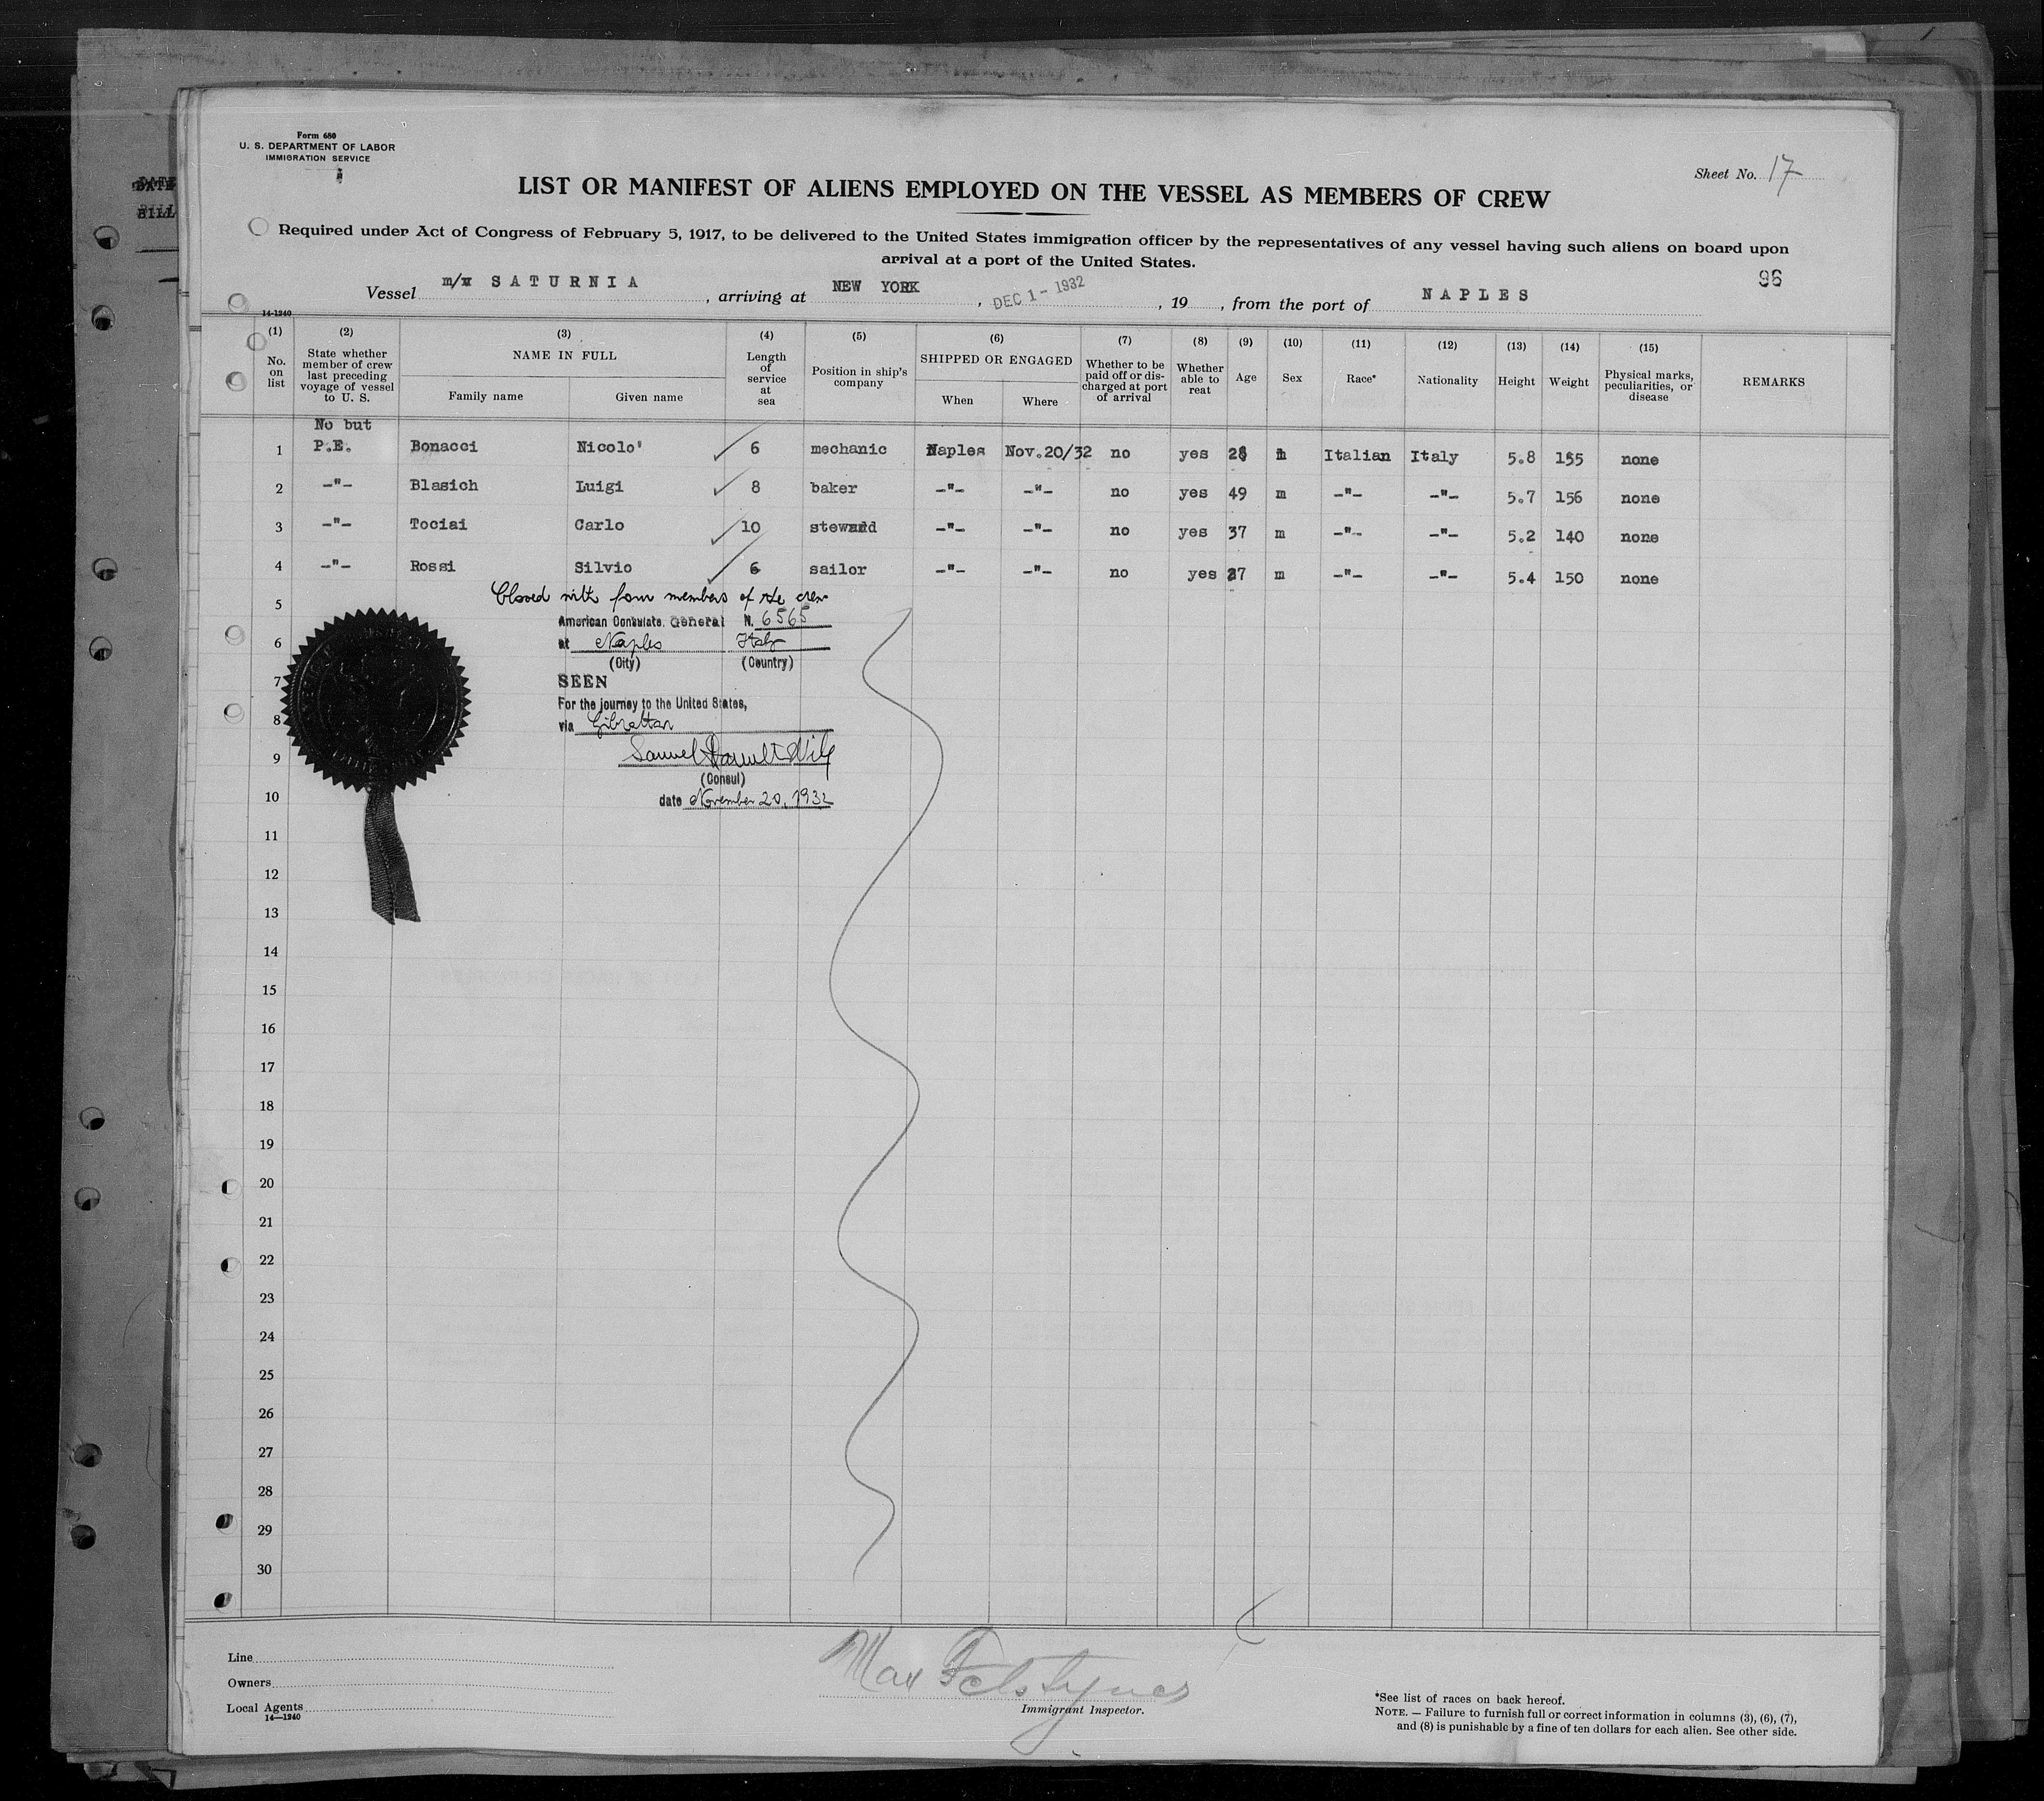 Form 680
U. S. DEPARTMENT OF LABOR
IMMIGRATION SERVICE
Sheet No. 17
LIST OR MANIFEST OF ALIENS EMPLOYED ON THE VESSEL AS MEMBERS OF CREW
Required under Act of Congress of February 5, 1917, to be delivered to the United States immigration officer by the representatives of any vessel having such aliens on board upon
arrival at a port of the United States.
96
Vessel m/v SATURNIA, arriving at NEW YORK, DEC 1 - 1932, 19, from the port of NAPLES
14-1240
(1) No. on list (2) State whether member of crew last preceding voyage of vessel to U. S. (3) NAME IN FULL Family name Given name (4) Length of service at sea (5) Position in ship's company (6) SHIPPED OR ENGAGED When Where (7) Whether to be paid off or discharged at port of arrival (8) Whether able to reat (9) Age (10) Sex (11) Race* (12) Nationality (13) Height (14) Weight (15) Physical marks, peculiarities, or disease REMARKS
No but
1 P.E. Bonacci Nicolo' 6 mechanic Naples Nov.20/32 no yes 28 m Italian Italy 5.8 155 none
2 -"- Blasich Luigi 8 baker -"- -"- no yes 49 m -"- -"- 5.7 156 none
3 -"- Tociai Carlo 10 steward -"- -"- no yes 37 m -"- -"- 5.2 140 none
4 -"- Rossi Silvio 6 sailor -"- -"- no yes 27 m -"- -"- 5.4 150 none
Closed with four members of the crew
5
American Consulate General N. 6565
6
at Naples Italy
(City) (Country)
7
SEEN
For the journey to the United States,
8
via Gibraltar
9
Samuel
(Consul)
10
date November 20, 1932
11
12
13
14
15
16
17
18
19
20
21
22
23
24
25
26
27
28
29
30
Line
Owners
Local Agents
14—1240
Max
Immigrant Inspector.
*See list of races on back hereof.
NOTE. — Failure to furnish full or correct information in columns (3), (6), (7),
and (8) is punishable by a fine of ten dollars for each alien. See other side.